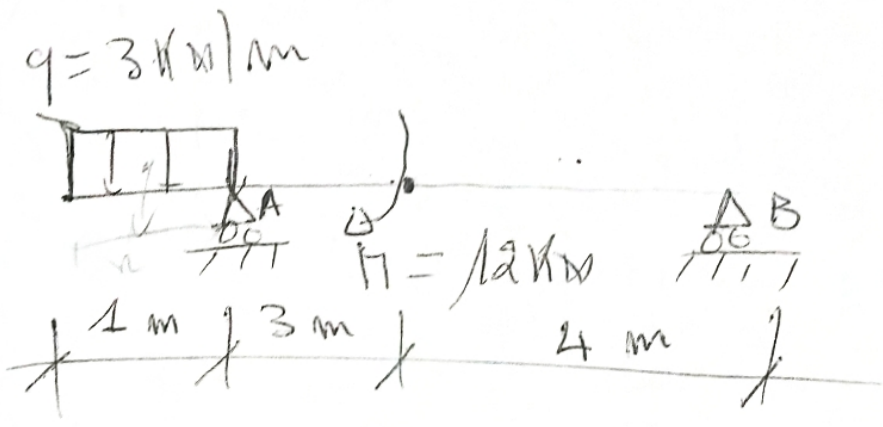 q=3KN/m
A
B
M=12KN
1 m 3 m 4 m